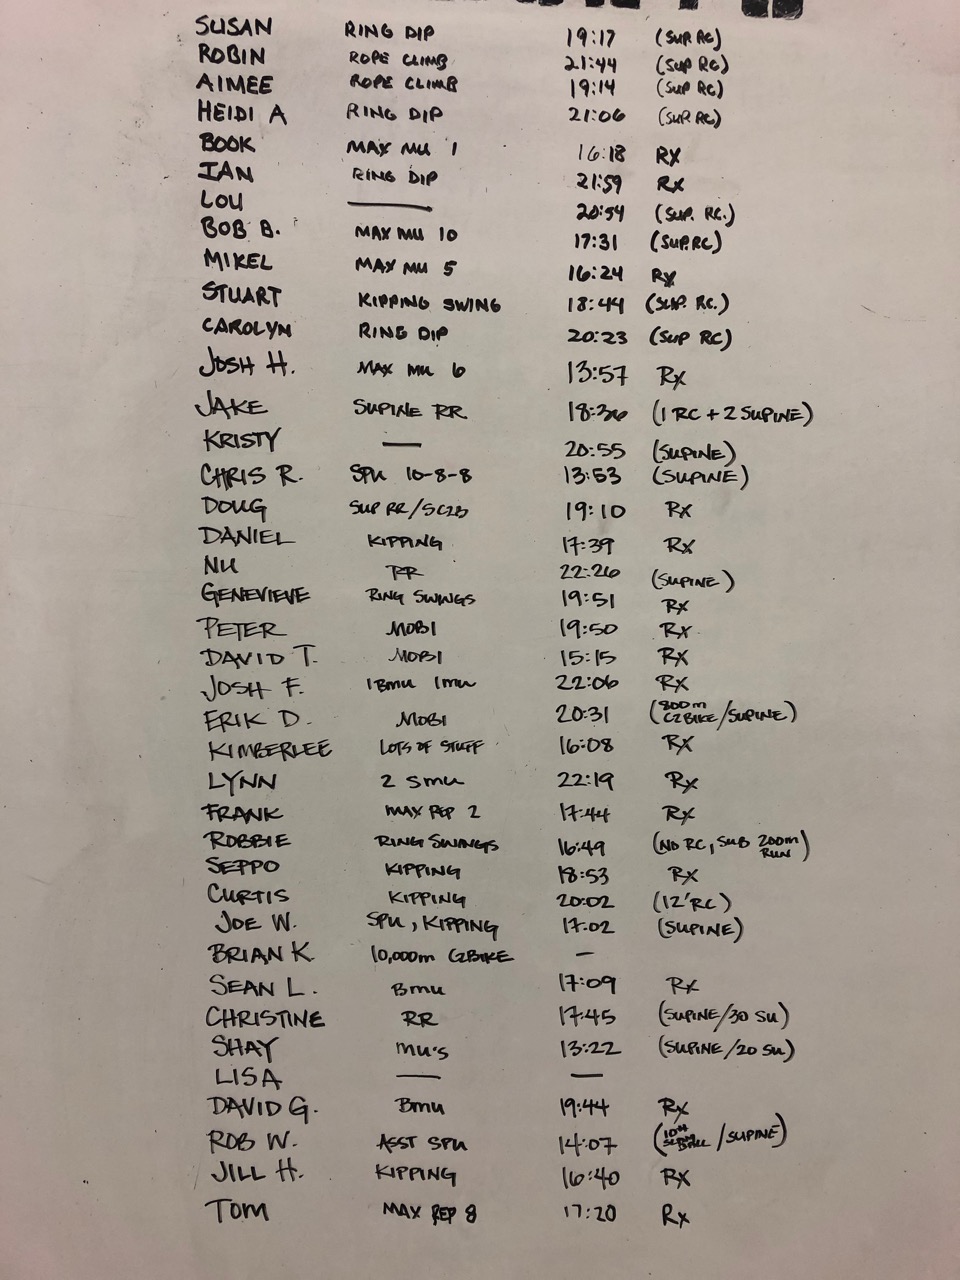 SUSAN RING DIP 19:17 (SUP RC)
ROBIN ROPE CLIMB 21:44 (SUP RC)
AIMEE ROPE CLIMB 19:14 (SUP RC)
HEIDI A RING DIP 21:06 (SUP. RC)
BOOK MAX MU 1 16:18 RX
IAN RING DIP 21:59 RX
LOU — 20:54 (SUP. RC.)
BOB B. MAX MU 10 17:31 (SUP. RC)
MIKEL MAX MU 5 16:24 RX
STUART KIPPING SWING 18:44 (SUP. RC.)
CAROLYN RING DIP 20:23 (SUP RC)
JOSH H. MAX MU 6 13:57 RX
JAKE SUPINE RR 18:36 (1 RC + 2 SUPINE)
KRISTY — 20:55 (SUPINE)
CHRIS R. SPU 10-8-8 13:53 (SUPINE)
DOUG SUP RR/SC2B 19:10 RX
DANIEL KIPPING 17:39 RX
NU RR 22:26 (SUPINE)
GENEVIEVE RING SWINGS 19:51 RX
PETER MOBI 19:50 RX
DAVID T. MOBI 15:15 RX
JOSH F. 1BMU 1MU 22:06 RX
ERIK D. MOBI 20:31 (800m C2BIKE/SUPINE)
KIMBERLEE LOTS OF STUFF 16:08 RX
LYNN 2 SMU 22:19 RX
FRANK MAX REP 2 17:44 RX
ROBBIE RING SWINGS 16:49 (NO RC, SUB 200m RUN)
SEPPO KIPPING 18:53 RX
CURTIS KIPPING 20:02 (12'RC)
JOE W. SPU, KIPPING 17:02 (SUPINE)
BRIAN K. 10,000m C2BIKE —
SEAN L. BMU 17:09 RX
CHRISTINE RR 17:45 (SUPINE/30 SU)
SHAY MU'S 13:22 (SUPINE/20 SU)
LISA — —
DAVID G. BMU 19:44 RX
ROB W. ASST SPU 14:07 (10# BALL/SUPINE)
JILL H. KIPPING 16:40 RX
TOM MAX REP 8 17:20 RX